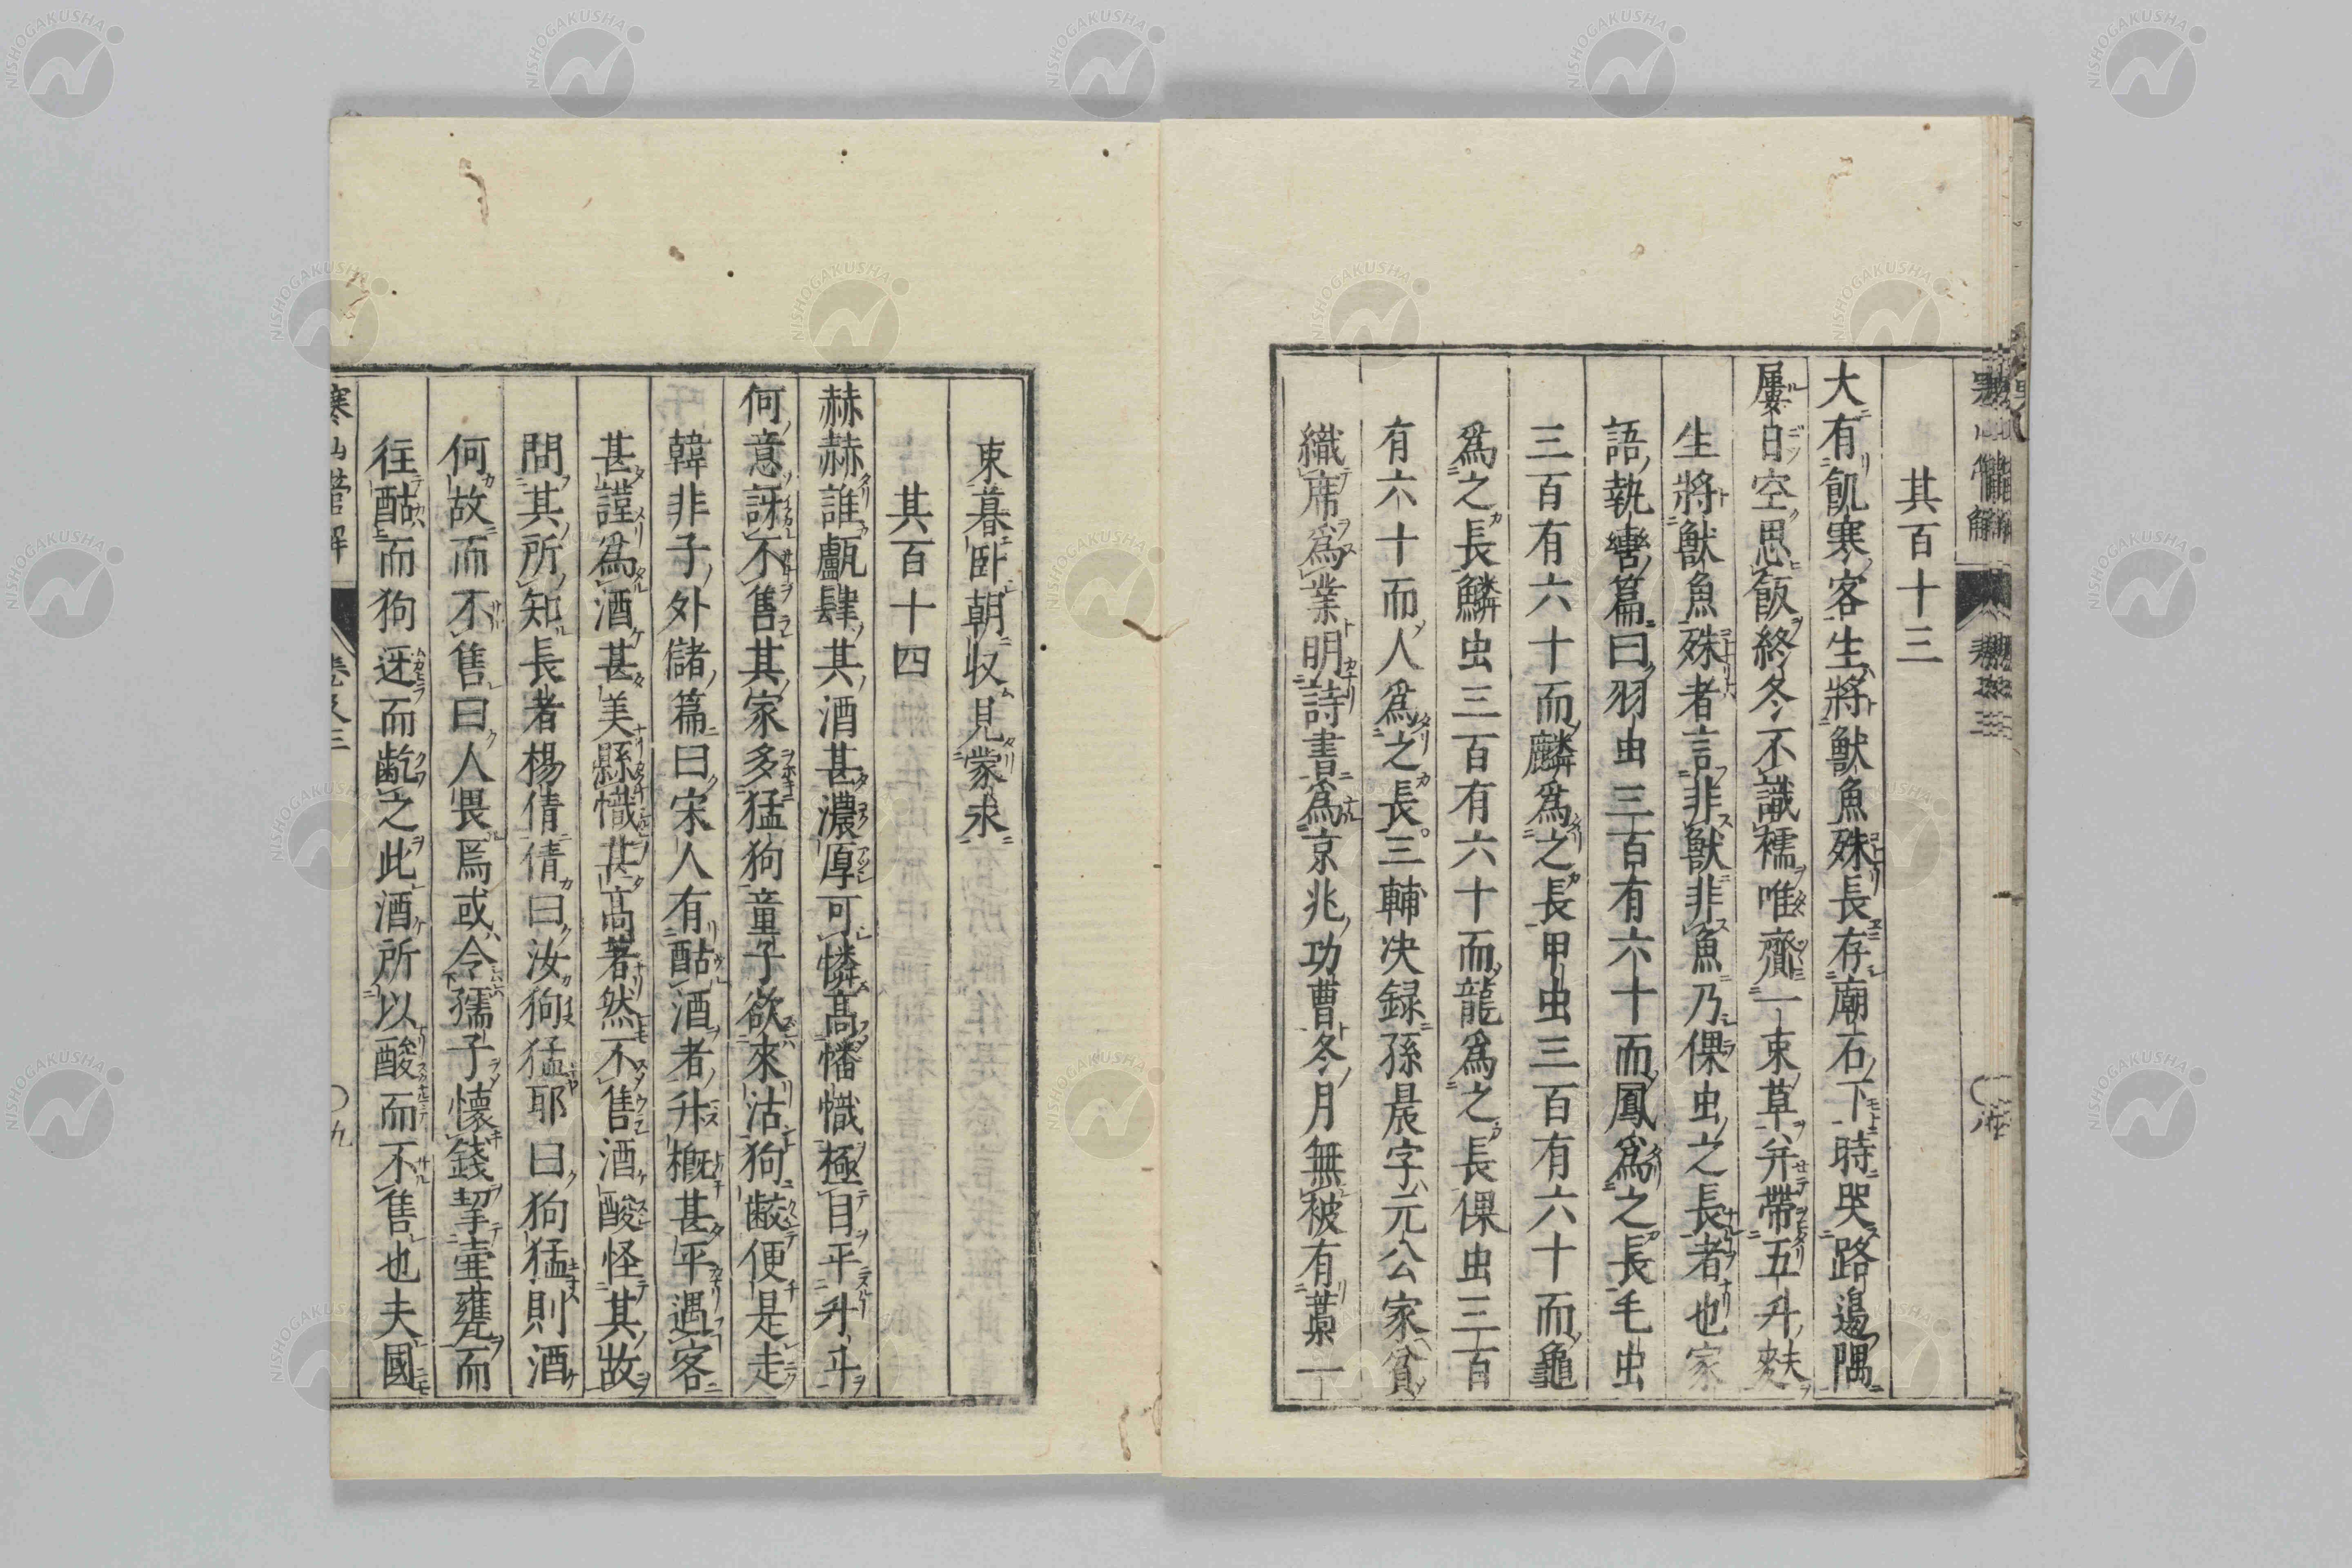 其百十三
大有飢寒客生將獸魚殊長存廟石下時哭路邊隅
屢日空思飯終冬不識襦唯齎一束草并帶五升麩
生將獸魚殊者言非獸非魚乃倮虫之長者也家
語執轡篇曰羽虫三百有六十而鳳爲之長毛虫
三百有六十而麟爲之長甲虫三百有六十而龜
爲之長鱗虫三百有六十而龍爲之長倮虫三百
有六十而人爲之長。三輔決録孫晨字元公家貧
織席爲業明詩書爲京兆功曹冬月無被有藁一
束暮卧朝収見蒙求
其百十四
赫赫誰甗肆其酒甚濃厚可憐高幡幟極目平升斗
何意訝不售其家多猛狗童子欲來沽狗齩便是走
韓非子外儲篇曰宋人有酤酒者升概甚平遇客
甚謹爲酒甚美縣幟甚高著然不售酒酸怪其故
問其所知長者楊倩倩曰汝狗猛耶曰狗猛則酒
何故而不售曰人畏焉或令孺子懷錢挈壷甕而
往酤而狗迓而齕之此酒所以酸而不售也夫國
寒山詩
卷之三
九
NISHOGAKUSHA